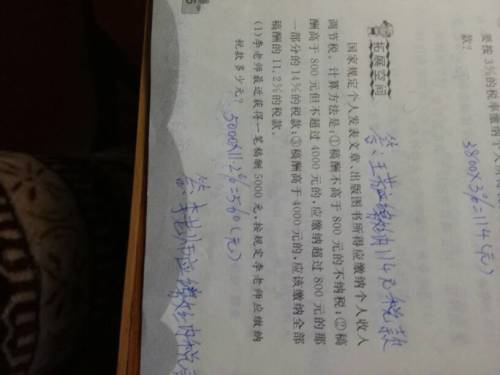 要按3%的税
款?
3800×3%=114(元)
答:王 应缴纳114元税款
拓展空间
国家规定个人发表文章、出版图书所得应缴纳个人收入
调节税。计算方法是:①稿酬不高于800元的不纳税;②稿
酬高于800元但不超过4000元的,应缴纳超过800元的那
一部分的14%的税款;③稿酬高于4000元的,应该缴纳全部
稿酬的11.2%的税款。
(1)李老师最近获得一笔稿酬5000元,按规定李老师应缴纳
税款多少元?
5000×11.2%=560(元)
答:李老师应缴纳税